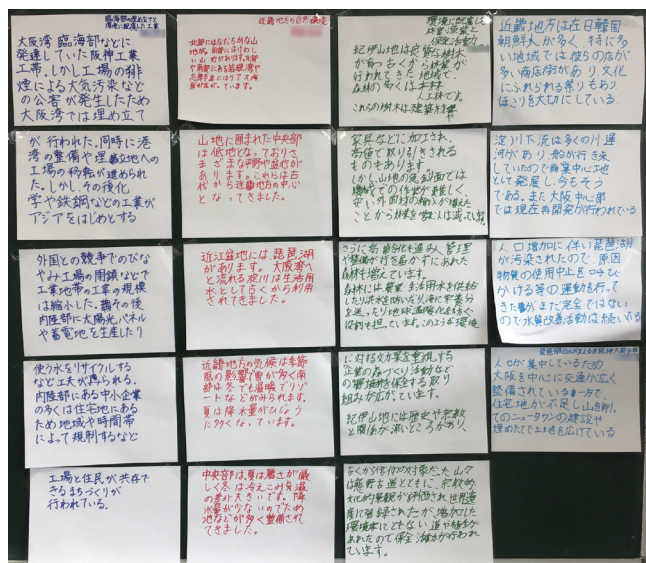 臨海部の埋め立てと
環境に配慮した工業
大阪湾臨海部などに
発達していた阪神工業
工帯。しかし工場の排
煙による大気汚染など
の公害が発生したため
大阪湾では埋め立て
が行われた。同時に港
湾の整備や埋立地への
工場の移転が進められ
た。しかし、その後化
学や鉄鋼などの工業が
アジアをはじめとする
外国との競争でのびな
やみ工場の閉鎖などで
工業地帯の工業の規模
は縮小した。その後
内陸部に太陽光パネル
や蓄電池を生産したり
使う水をリサイクルする
など工夫が見られる。
内陸部にある中小企業
の多くは住宅地にある
ため地域や時間帯
によって規制するなど
工場と住民が共存で
きるまちづくりが
行われている。
近畿地方の自然環境
北部にはなだらかな山
地が。南部にはけわし
い山地があります。北部
や南部にある若狭湾や
志摩半島にはリアス海
岸が広がっています。
山地に囲まれた中央部
は低地となっておりさ
まざまな平野や盆地が
あります。これらは古
代から近畿地方の中心
となってきました。
近江盆地には、琵琶湖
があります。大阪湾へ
と流れる淀川は生活用
水として古くから利用
されてきました。
近畿地方の気候は季節
風の影響で雪が多く南
部は冬でも温暖でリゾ
ートなどがみられます。
夏は降水量がひじょう
に多くなっています。
中央部は、夏は暑さが厳
しく冬は冷えこみ気温
の差が大きいです。降
水量が少ないのでため
池などが多く整備されて
きました。
環境に配慮した
林業・漁業と
保全活動
紀伊山地は良質な樹木
が育つ古くから林業が
行われてきた地域で、
森林の多くは
人工林です。
これらの樹木は建築材や
家具などに加工され、
高値で取り引きされる
ものもあります
しかし山地の急斜面では
機械での作業が難しく、
安い外国材の輸入が増えた
ことから林業を営む人は減っています。
さらに高齢化も進み、管理
や整備が行き届かずにあれた
森林も増えています。
森林には農業・生活用水を供給
したり洪水を防いだり海に栄養分
を送ったり地球温暖化を防ぐ
役割も担っています。このような環境
に対する効果を重視する
企業の森づくり活動など
の環境を保全する取り
組みが広がっています。
紀伊山地には歴史や宗教
と関係が深いところがあり、
古くから信仰の対象だった山々
は熊野古道とともに、宗教的・
文化的景観が評価され世界遺
産に登録されたが、増加した
観光客にともない道や植生が
あれたので保全活動が行われ
ています。
近畿地方は在日韓国・
朝鮮人が多く、特に多
い地域では彼らの店が
多い商店街があり、文化
にふれられる祭りもあり
ほこりを大切にしている。
淀川下流は多くの川、運
河があり、船が行き来
していたので商業中心地
として発展し、今もそう
である。また大阪中心部
では現在再開発が行われている。
人口増加に伴い琵琶湖
が汚染されたので、原因
物質の使用中止をよびか
かける等の運動も行って
きたがまだ完全ではない
ので水質改善活動は続いている
人口が集中しているため
大阪を中心に交通が広く
整備されている一方で、
住宅地が不足し山を削
てのニュータウンの建設や
埋めたてで土地を広げている